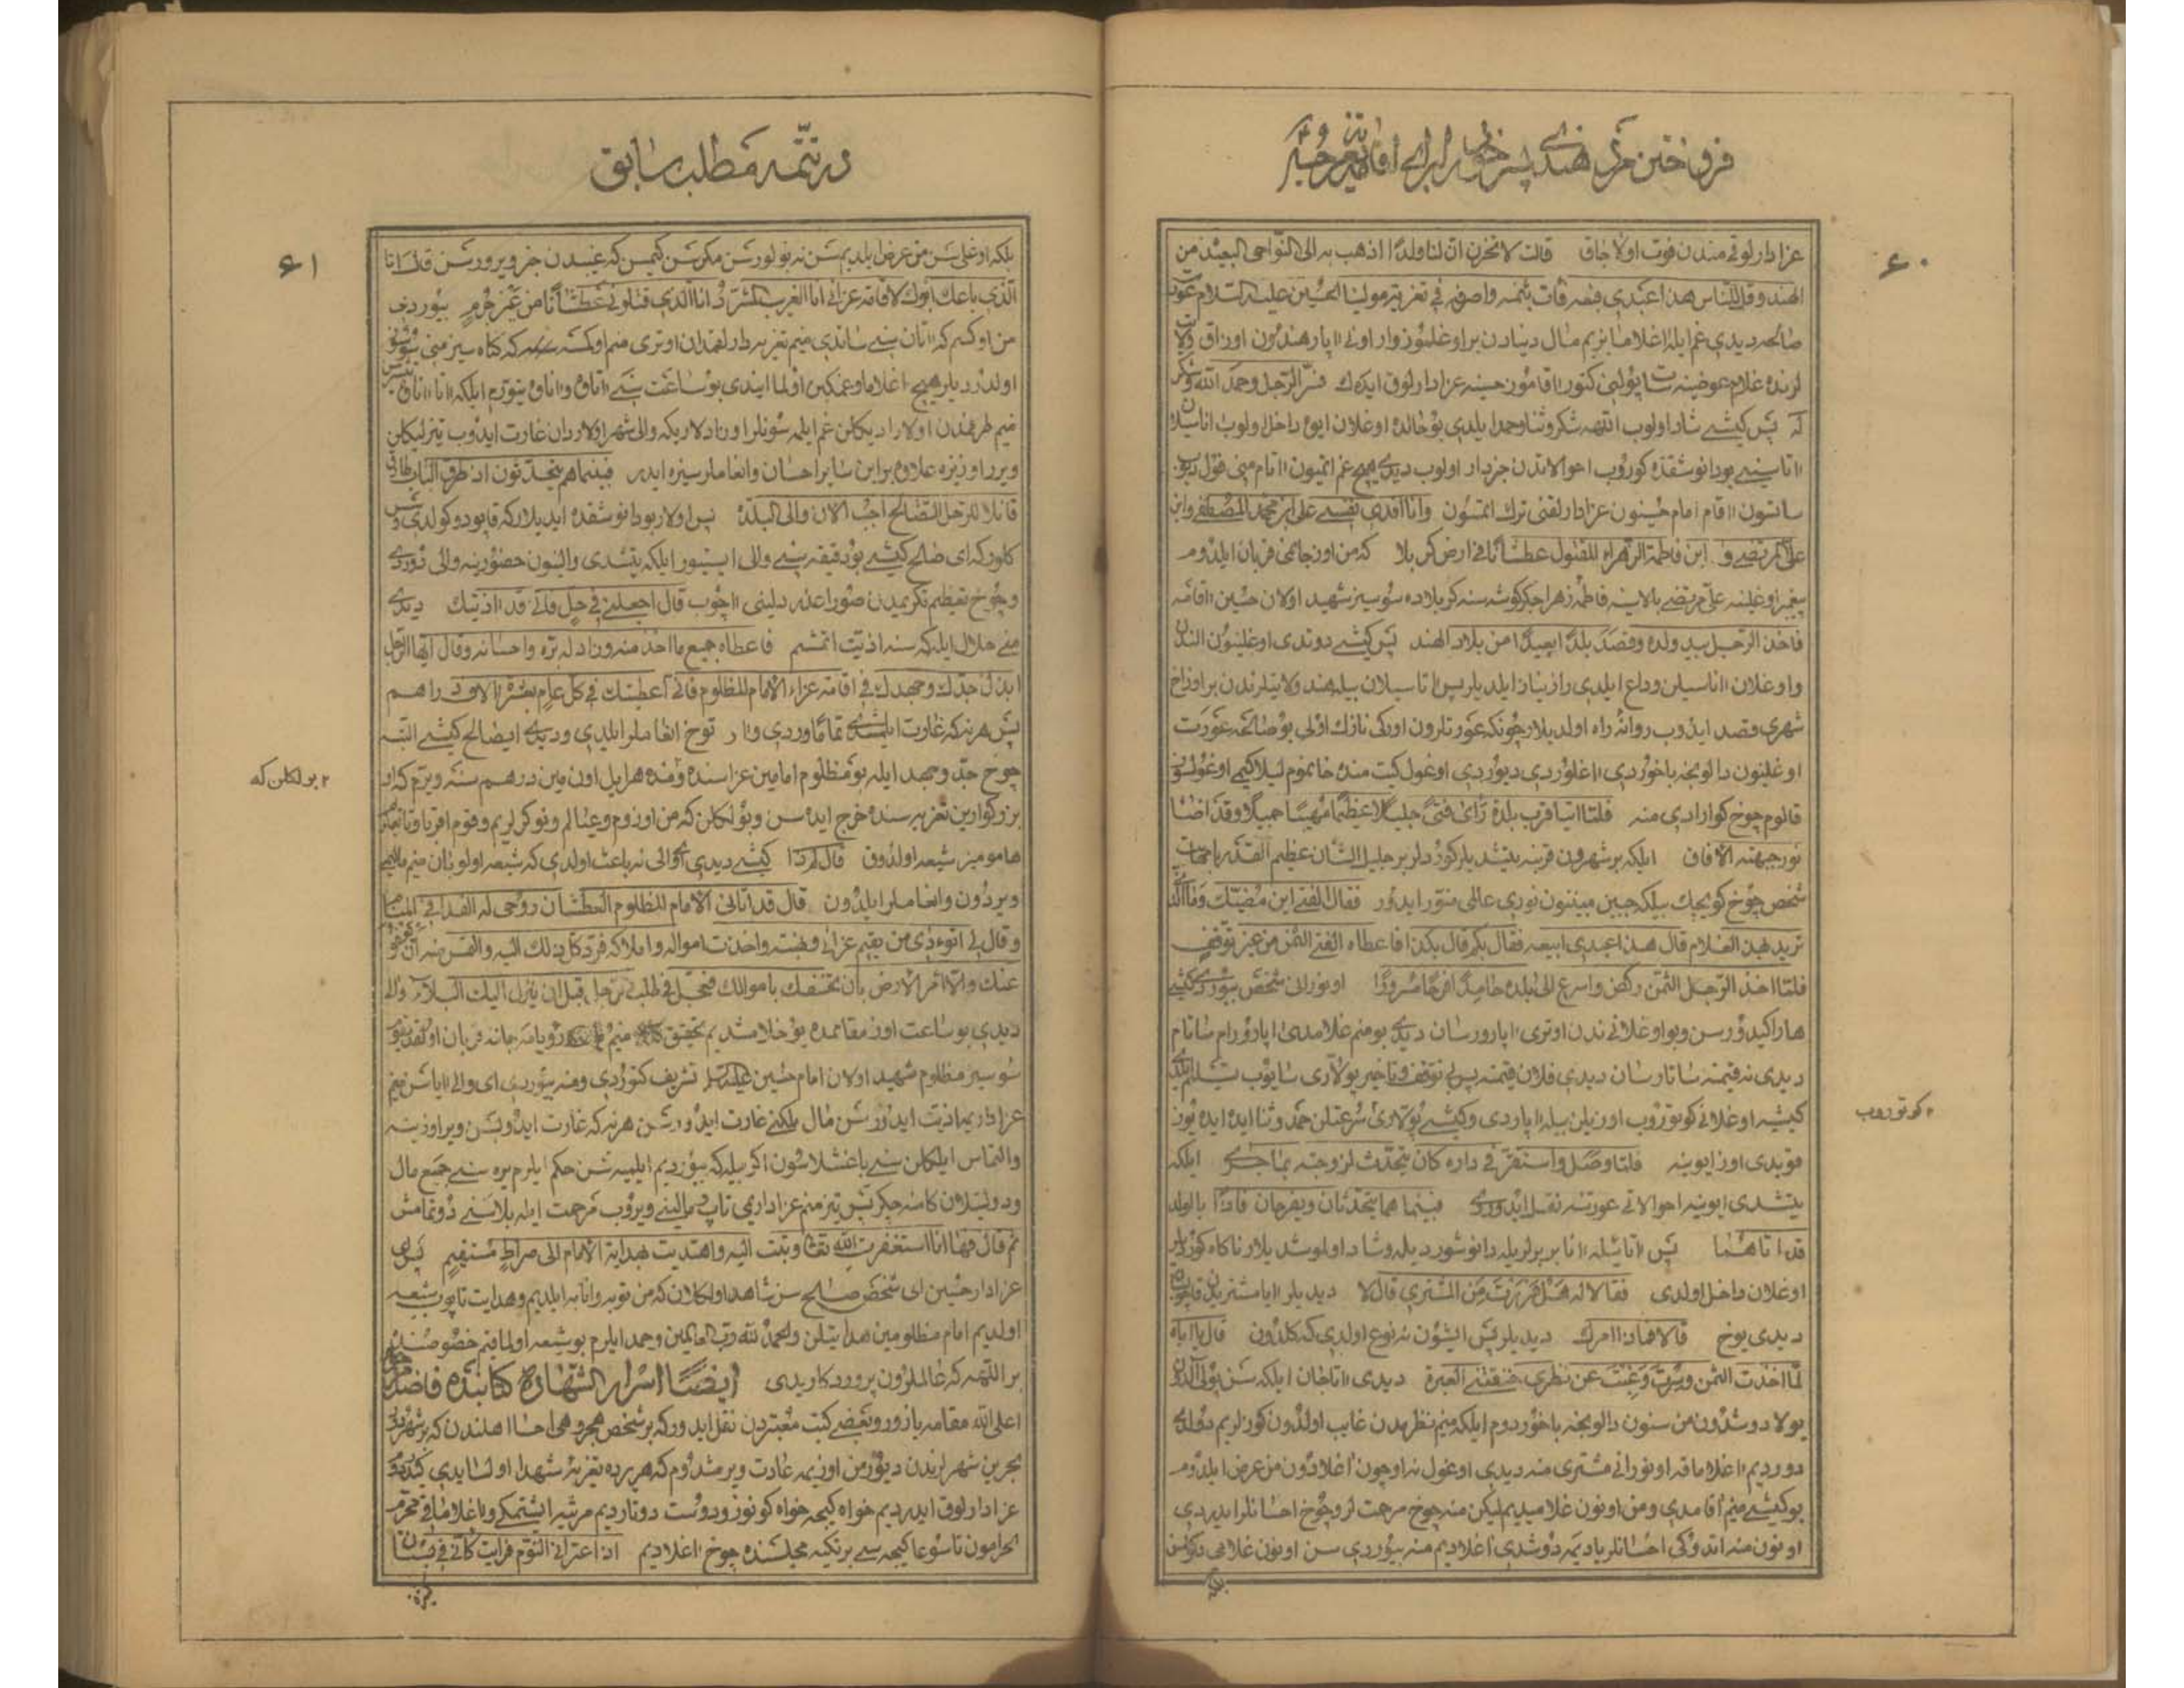 فروختن مرد هندی پسر خود را برای اقامه تعزیه حسین
۶۰
عزادارلوقی مندن فوت اولاجاق قالت لا تحزن ان لنا ولدا اذهب به الی النواحی البعید من
الهند و قل للناس هذا عبدی فبعه فات بثمنه واصرفه فی تعزیة مولینا الحسین علیه السلام عورت
صالحه دیدی غم ایله اغلاما بزیم مال دنیادن بر اوغلیموز وار اونی اپار هندون اوزاق ولایت
لرنده غلام عوضینه سات پولنی کتور اقامون حسینه عزادارلوق ایدک فسر الرجل وحمد الله وشکر
له پس کیشی شاد اولوب اللهه شکر و ثنا و حمد ایلدی بو حالده اوغلان ایوه داخل اولوب اناسیلان
اتاسینی بو دانوشقده کوروب احوالاتدن خبردار اولوب دیدی هیچ غم ایتمیون اتام منی قول دیوب
ساتسون اقام امام حسینون عزادارلقنی ترک ایتمسون وانا افدی نفسی علی ابن محمد المصطفی وابن
علی المرتضی و ابن فاطمة الزهراء المقتول عطشانا فی ارض کربلا که من اوز جانمی قربان ایلدوم
پیغمبر اوغلینه علی مرتضی بالاسینه فاطمه زهرا جکرکوشه سنه کربلاده سوسیز شهید اولان حسین اقامه
فاخذ الرجل بید ولده وقصد بلدا بعیدا من بلاد الهند پس کیشی دوتدی اوغلینون الندن
واوغلان اناسیلن وداع ایلدی راز نیاز ایلدیلر پس اتاسیلان بیله هند ولایتلرندن بر اوزاخ
شهری قصد ایدوب روانه راه اولدیلار چونکه عورتلرون اورکی نازک اولی بو صالحه عورت
اوغلینون دالونجه باخوردی اغلوردی دیوردی اوغول کیت منده خانموم لیلا کیمی اوغولسوز
قالوم چوخ کوارادی منه فلما اتیا قرب بلدة رای فتی جلیلا عظیما مهیبا جمیلا وقد اضا
نور جبهته الافاق ایلکه بر شهرون قربنه یتشدیلر کوردلر بر جلیل الشان عظیم القدر با مهابت
شخص چوخ کویچک بیلکه جبین مبینون نوری عالمی منور ایدور فقال الفتی این مضیک وما الذی
ترید بهذا الغلام قال هذا عبدی ابیعه فقال بکم قال بکذا فاعطاه الفتی الثمن من غیر توقف
فلما اخذ الرجل الثمن رکض واسرع الی بلده حامدا فرحا مسرورا او نورانی شخص بیوردی کیشی
هارا کیدورسن وبو اوغلانی ندن اوتری اپارورسان دیدی بو منم غلامدی اپارورام ساتام
دیدی نه قیمته ساتارسان دیدی فلان قیمته پس بی توقف وتاخیر پولاری سایوب تسلیم ایلدی
۲کوتوروب
کیشیه اوغلانی کوتوروب اوزیلن بیله اپاردی وکیشی پولاری سرعتلن حمد وثنا ایده ایده یوز
قویدی اوز ایوینه فلما وصل واستقر فی داره کان یتحدث لزوجته بما جری ایلکه
یتشدی ایوینه احوالاتی عورتنه نقل ایدوردی فبینما هما یتحدثان ویفرحان فاذا بالولد
قد اتاهما پس اتا ایله انا بر برلریله دانوشوردیله وشاد اولوشدیلار ناکاه کوردیلر
اوغلان داخل اولدی فقالا له هل هربت من المشتری قال لا دیدیلر ایا مشتریدن قاچوبسن
دیدی یوخ قالا فماذا امرک دیدیلر پس ایشون نه نوع اولدی که کلدون قال یا اباه
لما اخذت الثمن وسرت وغبت عن نظری خنقتنی العبرة دیدی اتاجان ایلکه سن پولی الدون
یولا دوشدون من سنون دالونجه باخوردوم ایلکه منیم نظرمدن غایب اولدون کوزلریم دولدی
دوردیم اغلاماقه او نورانی مشتری منه دیدی اوغول نه اوچون اغلادون من عرض ایلدوم
بو کیشی منیم اقامدی ومن اونون غلامیدیم لیکن منه چوخ مرحمت لر وچوخ احسانلر ایدردی
اونون منه ایتدوکی احسانلر یادیمه دوشدی اغلادیم منه بیوردی سن اونون غلامی دکولسن
در تتمه مطلب سابق
۶۱
بلکه اوغلی سن من عرض ایلدیم سن نه بولورسن مکر سن کیمسن که غیبدن خبر ویرورسن قال انا
الذی باعک ابوک لاقامة عزائی انا الغریب المشرد انا الذی قتلونی عطشانا من غیر جرم بیوردی
من او کسم که اتان سنی ساتدی منیم تعزیه دارلقمدان اوتری منم او کشته که کناه سیز منی سوسوز
اولدردیلر هیچ اغلاما وغمکین اولما ایندی بو ساعت سنی اتاوه واناوه یتوررم ایلکه اتا اناوه یتیشرسن
غیم طرفمدن اولارا دیکلن غم ایلمه سونلر اوزادلار یکه والی شهر اولاردان غارت ایدوب تیزلیکلن
ویرر اوزیزه علاوه بر این سایر احسان وانعاملر سیزه ایدر فبینما هم یتحدثون اذ طرق الباب طارق
قائلا للرجل الصالح اجب الان والی البلدة پس اولار بو دانوشقده ایدیلار که قاپو دوکولدی وسس
کلور که ای صالح کیشی بو دقیقه سنی والی ایستیور ایلکه یتشدی والینون حضورینه والی دوردی
وچوخ تعظیم تکریمدن صورا عذر دلینی اچوب قال اجعلنی فی حل فانی قد اذیتک دیدی
منی حلال ایله که سنه اذیت ایتمشم فاعطاه جمیع ما اخذ منه وزاد له بره واحسانه وقال ایها الرجل
ابذل جدک وجهدک فی اقامة عزاء الامام المظلوم فانی اعطیتک فی کل عام بعشرة الاف دراهم
پس هر نه که غارت ایلمشدی تماما وردی و اوز توخ انعاملر ایلدی ودیدی ای صالح کیشی البته
۲بولکلن که
چوخ جد وجهد ایله بو مظلوم امامین عزاسنده ومنده هر ایل اون مین درهم سنه ویرم که او
بزرکوارین تعزیه سنده خرج ایده سن وبولکلن که من اوزوم وعیالم ونوکرلریم وقوم اقرباوتابعلریم
هامومیز شیعه اولدوق قال لم ذا کیشی دیدی ای والی نه باعث اولدی که شیعه اولوبان منیم مالیمی
ویردون وانعاملر ایلدون قال قد اتانی الامام المظلوم العطشان روحی له الفدا فی المنام
وقال لی اتوءذی من یقیم عزائی ونهبته واخذت امواله واملاکه فرد کل ذلک الیه والتمس منه ان یعفو
عنک والا امر الارض بان تخسفک باموالک فتعجل فی طلب الرجل قبل ان ینزل الیک البلاء والی
دیدی بو ساعت اوز مقاممده یوخلامشدیم تحقیق منیم رویامه جانه قربان اولقدیغم
سوسیز مظلوم شهید اولان امام حسین علیه السلام تشریف کتوردی ومنه بیوردی ای والی ایا سن منیم
عزاداریمه اذیت ایدورسن مال ملکنی غارت ایدورسن هر نه که غارت ایدوبسن ویر اوزینه
والتماس ایلکلن سنی باغشلاسون اکر بیله که بیوردیم ایلمیه سن حکم ایلرم یره سنی جمیع مال
ودولتیلان کامنه چکر پس تیز منم عزاداری تاپ مالینی ویروب مرحمت ایله بلاسنی دوتمامش
ثم قال فها انا استغفرت الله تعالی وتبت الیه واهتدیت بهدایة الامام الی صراط مستقیم پس ای
عزادار حسین ای شخص صالح سن شاهد اولکلان که من توبه وانابه ایلدیم وهدایت تاپوب شیعه
اولدیم امام مظلومین هدایتیلن والحمد لله رب العالمین وحمد ایلرم بو شیعه اولماقیم خصوصنده
بر اللهه که عالملرون پروردکاریدی ایضا اسرار الشهاده کتابنده فاضل
اعلی الله مقامه یازور وبعضی کتب معتبردن نقل ایدور که بر شخص هجری احسا اهلندن که بر شهردی
بحرین شهرلرندن دیور من اوزیمه عادت ویرمشدوم که هر یرده تعزیه شهدا اولسایدی کیدردیم
عزادارلوق ایدردیم خواه کیجه خواه کوندوز ودوست دوتاردیم مرثیه ایشتمکی واغلاماقی محرم
الحرامون تاسوعا کیجه سی بر تکیه مجلسنده چوخ اغلادیم اذ اعترانی النوم فرایت کانی فی بستان